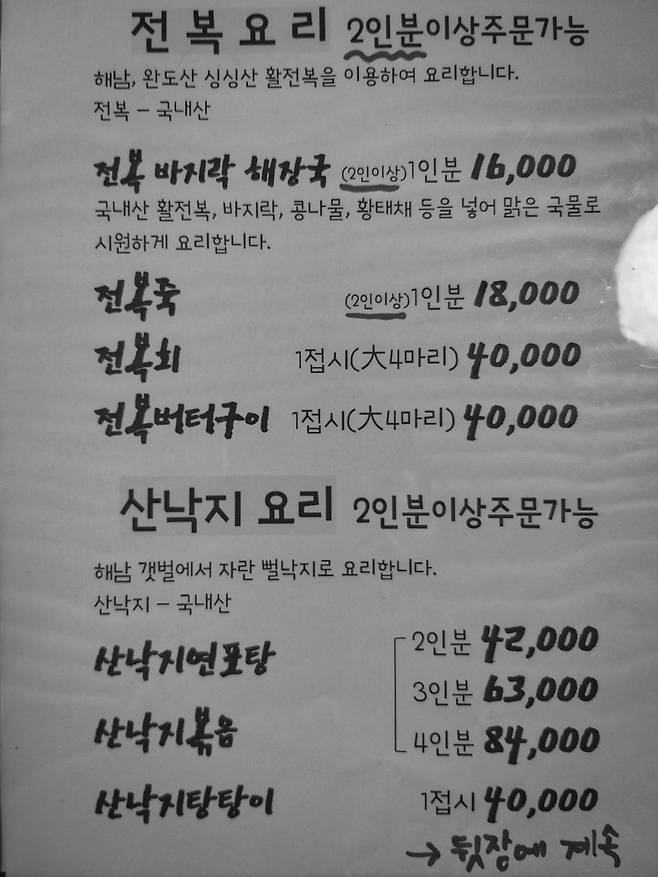 전복요리 2인분이상주문가능
해남, 완도산 싱싱산 활전복을 이용하여 요리합니다.
전복 – 국내산
전복 바지락 해장국 (2인이상)1인분 16,000
국내산 활전복, 바지락, 콩나물, 황태채 등을 넣어 맑은 국물로
시원하게 요리합니다.
전복죽 (2인이상)1인분 18,000
전복회 1접시(大4마리) 40,000
전복버터구이 1접시(大4마리) 40,000
산낙지 요리 2인분이상주문가능
해남 갯벌에서 자란 뻘낙지로 요리합니다.
산낙지 – 국내산
2인분 42,000
산낙지연포탕
3인분 63,000
산낙지볶음
4인분 84,000
산낙지탕탕이 1접시 40,000
→ 뒷장에 계속